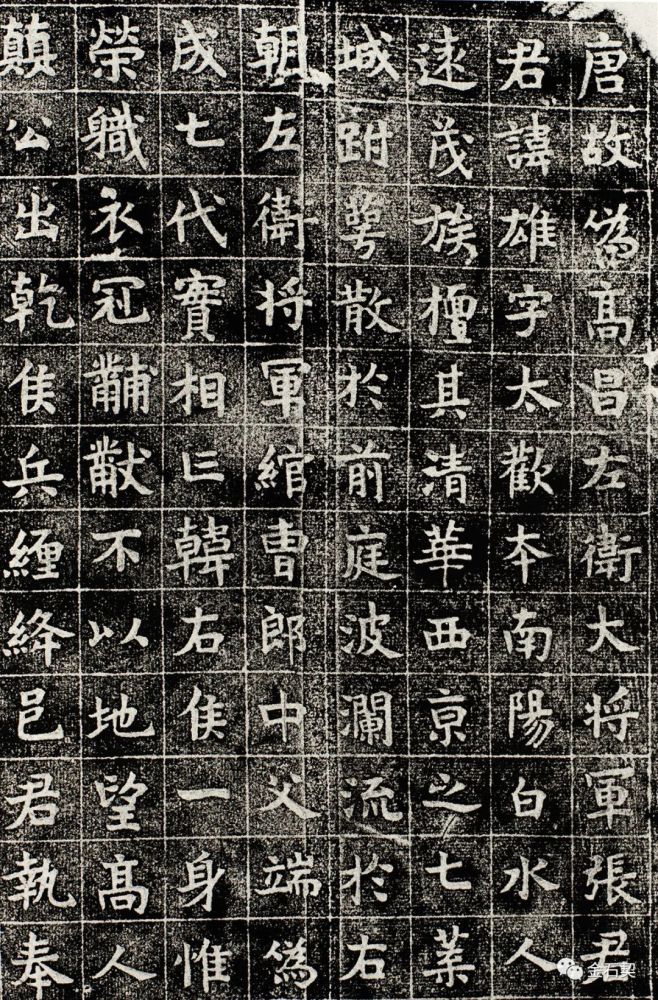 唐故偽髙昌左衛大将軍張君
君諱雄字太歡本南陽白水人
逺茂族檀其清華西亰之七葉
城跗萼散於前庭波瀾流於右
朝左衛将軍綰曹郎中父端偽
成七代實相亡韓右侯一身惟
榮職衣冠黼黻不以地望髙人
顛公出乾侯兵纏絳邑君執奉
金石契